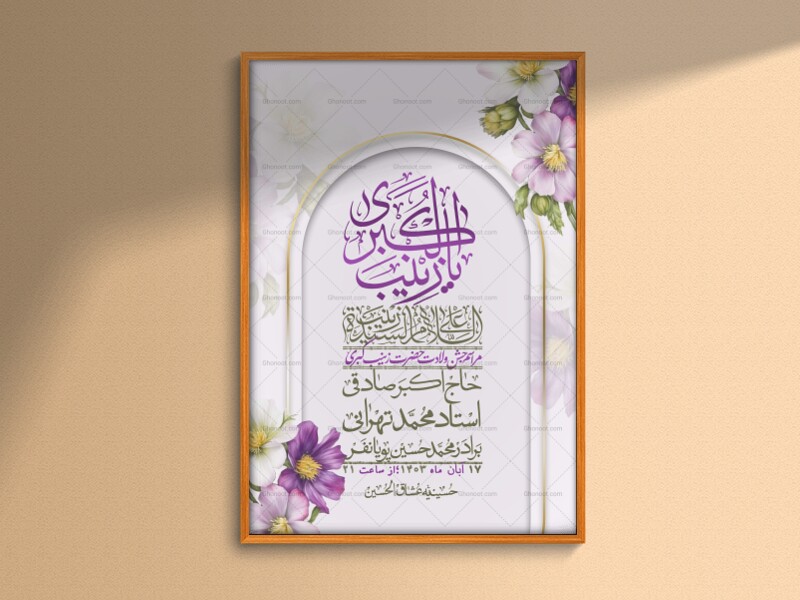 یا زینب الکبری
السلام علی السیدة زینب
مراسم جشن ولادت حضرت زینب کبری
حاج اکبر صادقی
استاد محمد تهرانی
برادر محمد حسین پویانفر
۱۷ آبان ماه ۱۴۰۳؛از ساعت ۲۱
حسینیه عشاق الحسین
Ghonoot.com